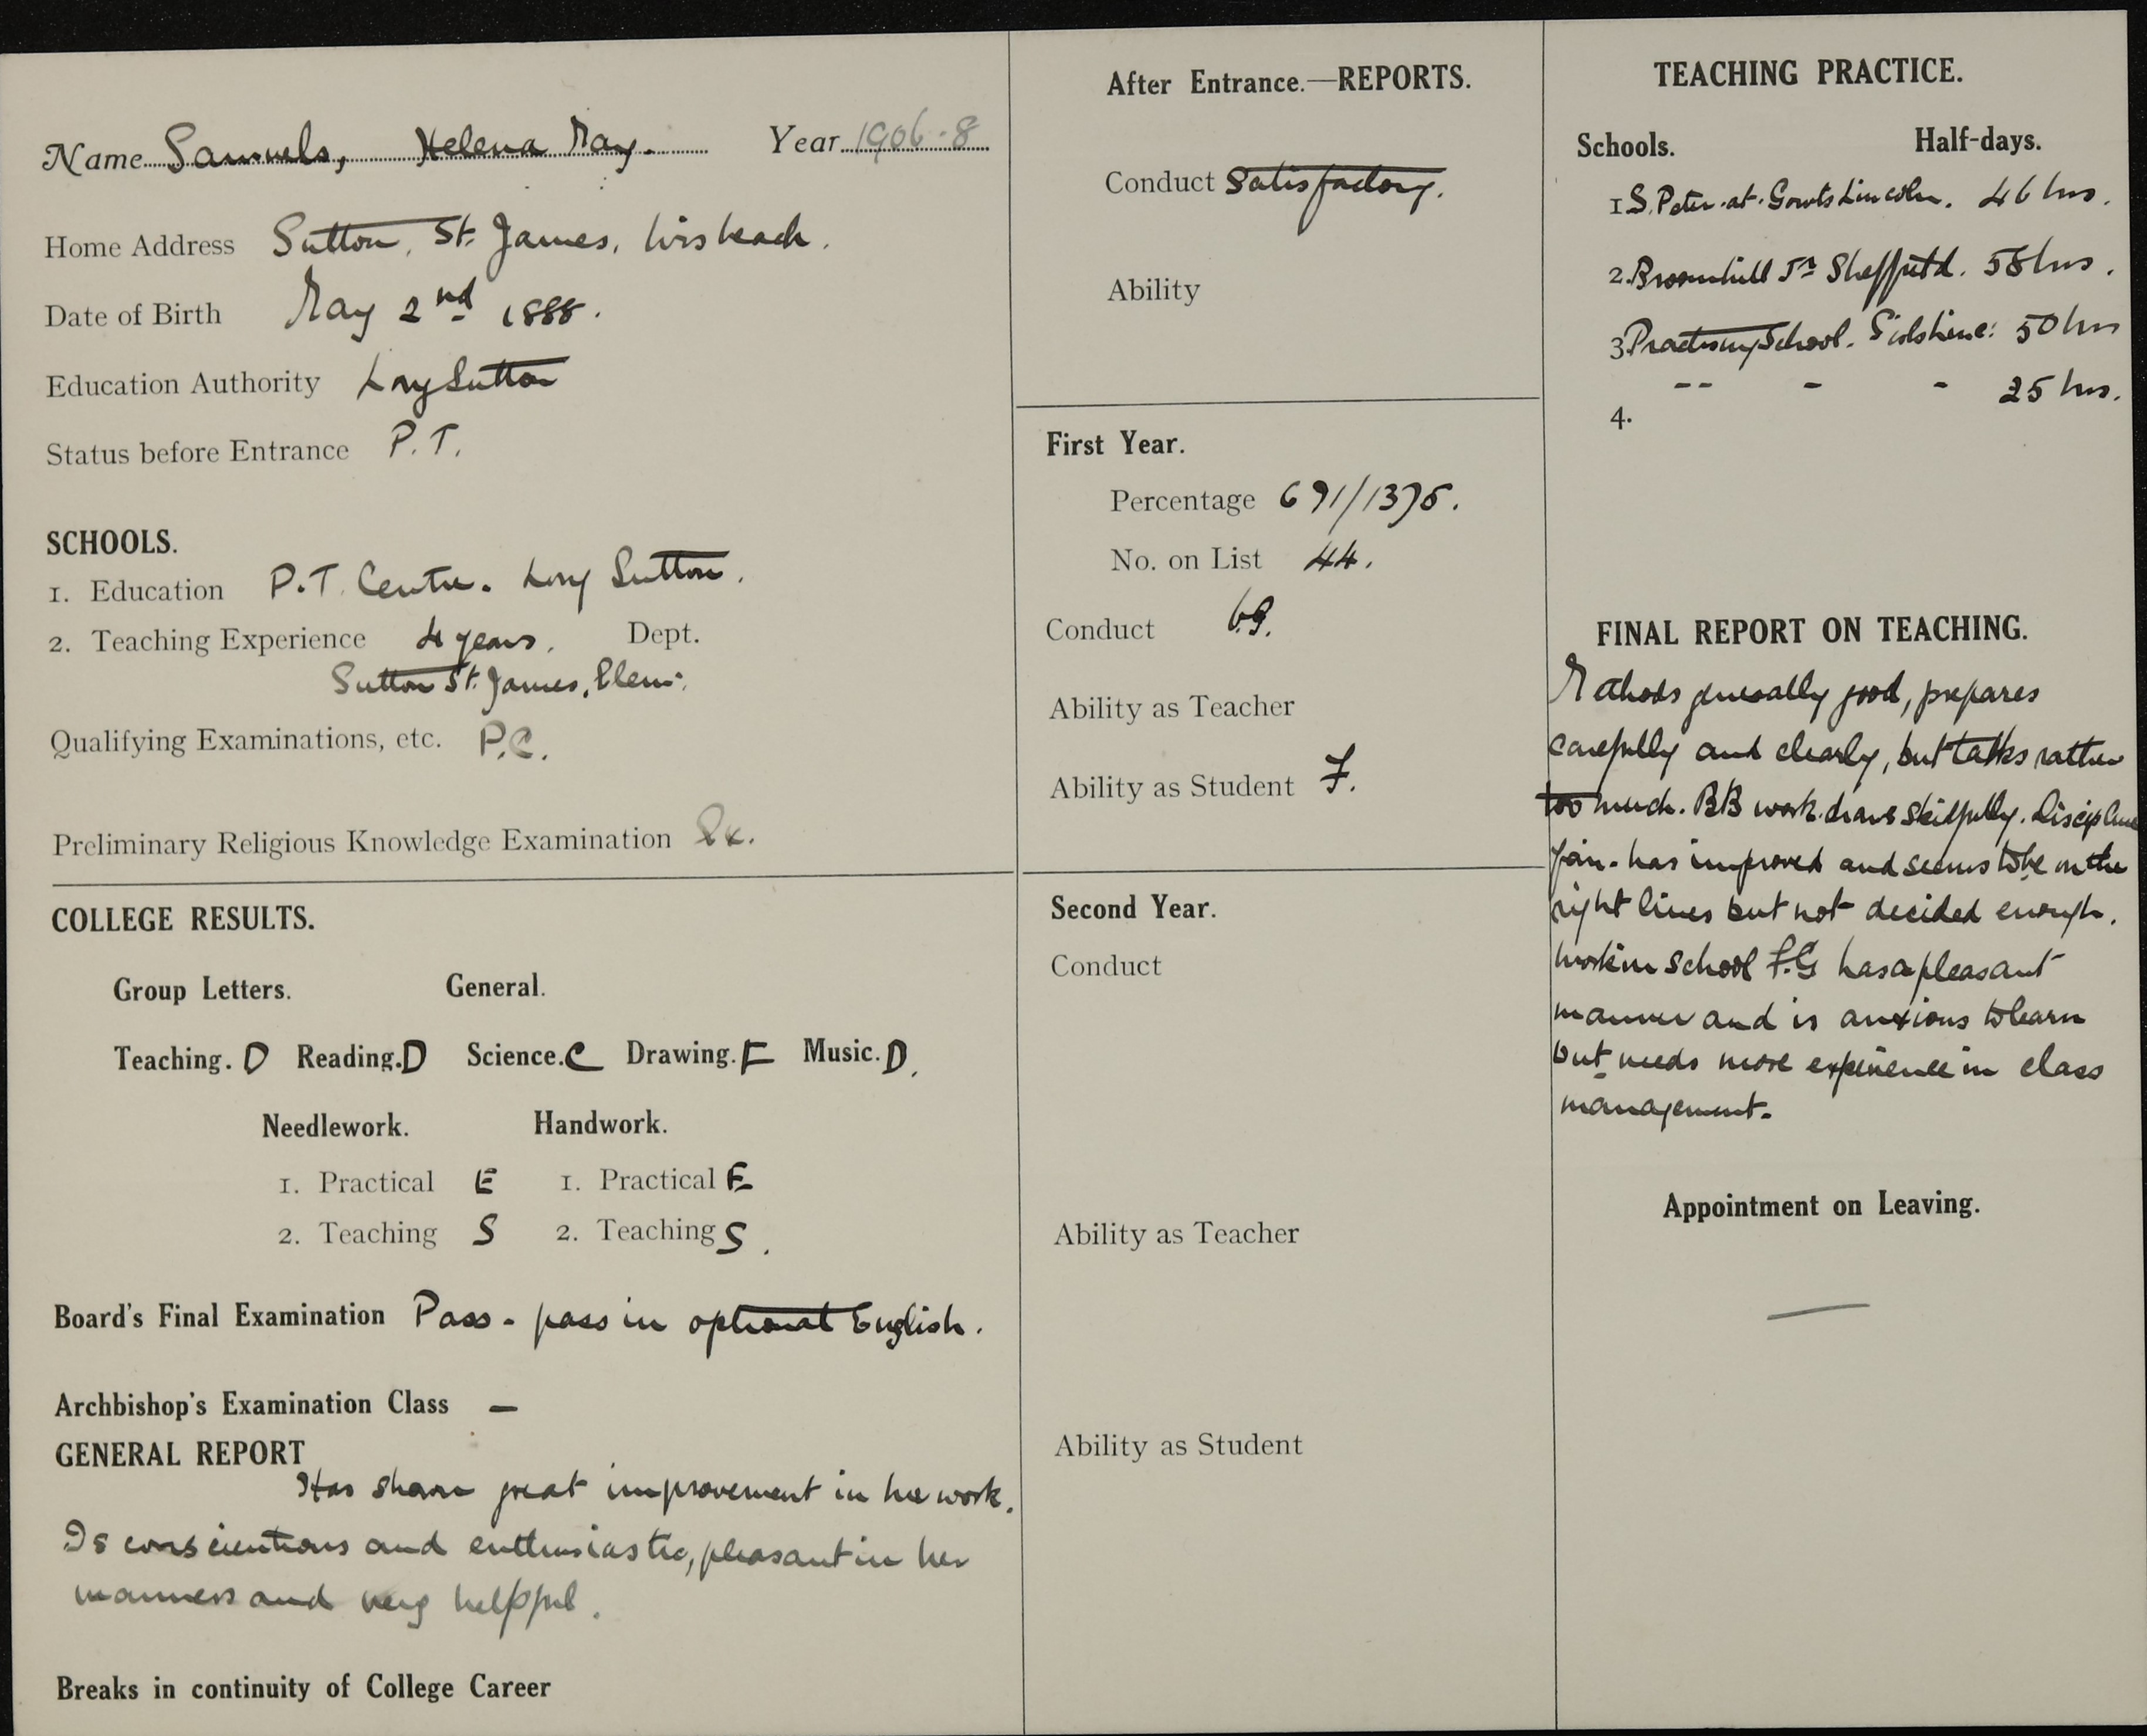 Name Samuels, Helena May. Year 1906-8
Home Address Sutton, St. James, Wisbeach.
Date of Birth May 2nd 1888.
Education Authority Long Sutton
Status before Entrance P.T.
SCHOOLS.
1. Education P.T. Centre. Long Sutton.
2. Teaching Experience 4 years. Dept.
Sutton St. James, Elem.
Qualifying Examinations, etc. P.C.
Preliminary Religious Knowledge Examination
COLLEGE RESULTS.
Group Letters. General.
Teaching. D Reading. D Science. C Drawing. E Music. D.
Needlework. Handwork.
1. Practical E 1. Practical E
2. Teaching S 2. Teaching S.
Board's Final Examination Pass - pass in optional English.
Archbishop's Examination Class —
GENERAL REPORT
Has shown great improvement in her work.
Is conscientious and enthusiastic, pleasant in her
manners and very helpful.
Breaks in continuity of College Career
After Entrance.—REPORTS.
Conduct Satisfactory.
Ability
First Year.
Percentage 691/1375.
No. on List 44.
Conduct
Ability as Teacher
Ability as Student F.
Second Year.
Conduct
Ability as Teacher
Ability as Student
TEACHING PRACTICE.
Schools. Half-days.
1 S. Peter-at-Gowts Lincoln. 46 hrs.
2. Broomhill Sheffield. 58 hrs.
3 Practising School. Girls 50 hrs
-- - - 25 hrs.
4.
FINAL REPORT ON TEACHING.
Methods generally good, prepares
carefully and clearly, but talks rather
too much. BB work. draws skilfully. Discipline
fair - has improved and seems to be on the
right lines but not decided enough.
Work in School F.G has a pleasant
manner and is anxious to learn
but needs more experience in class
management.
Appointment on Leaving.
—